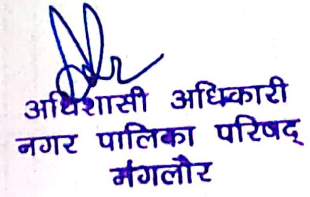 अधिशासी अधिकारी
नगर पालिका परिषद्
मंगलौर